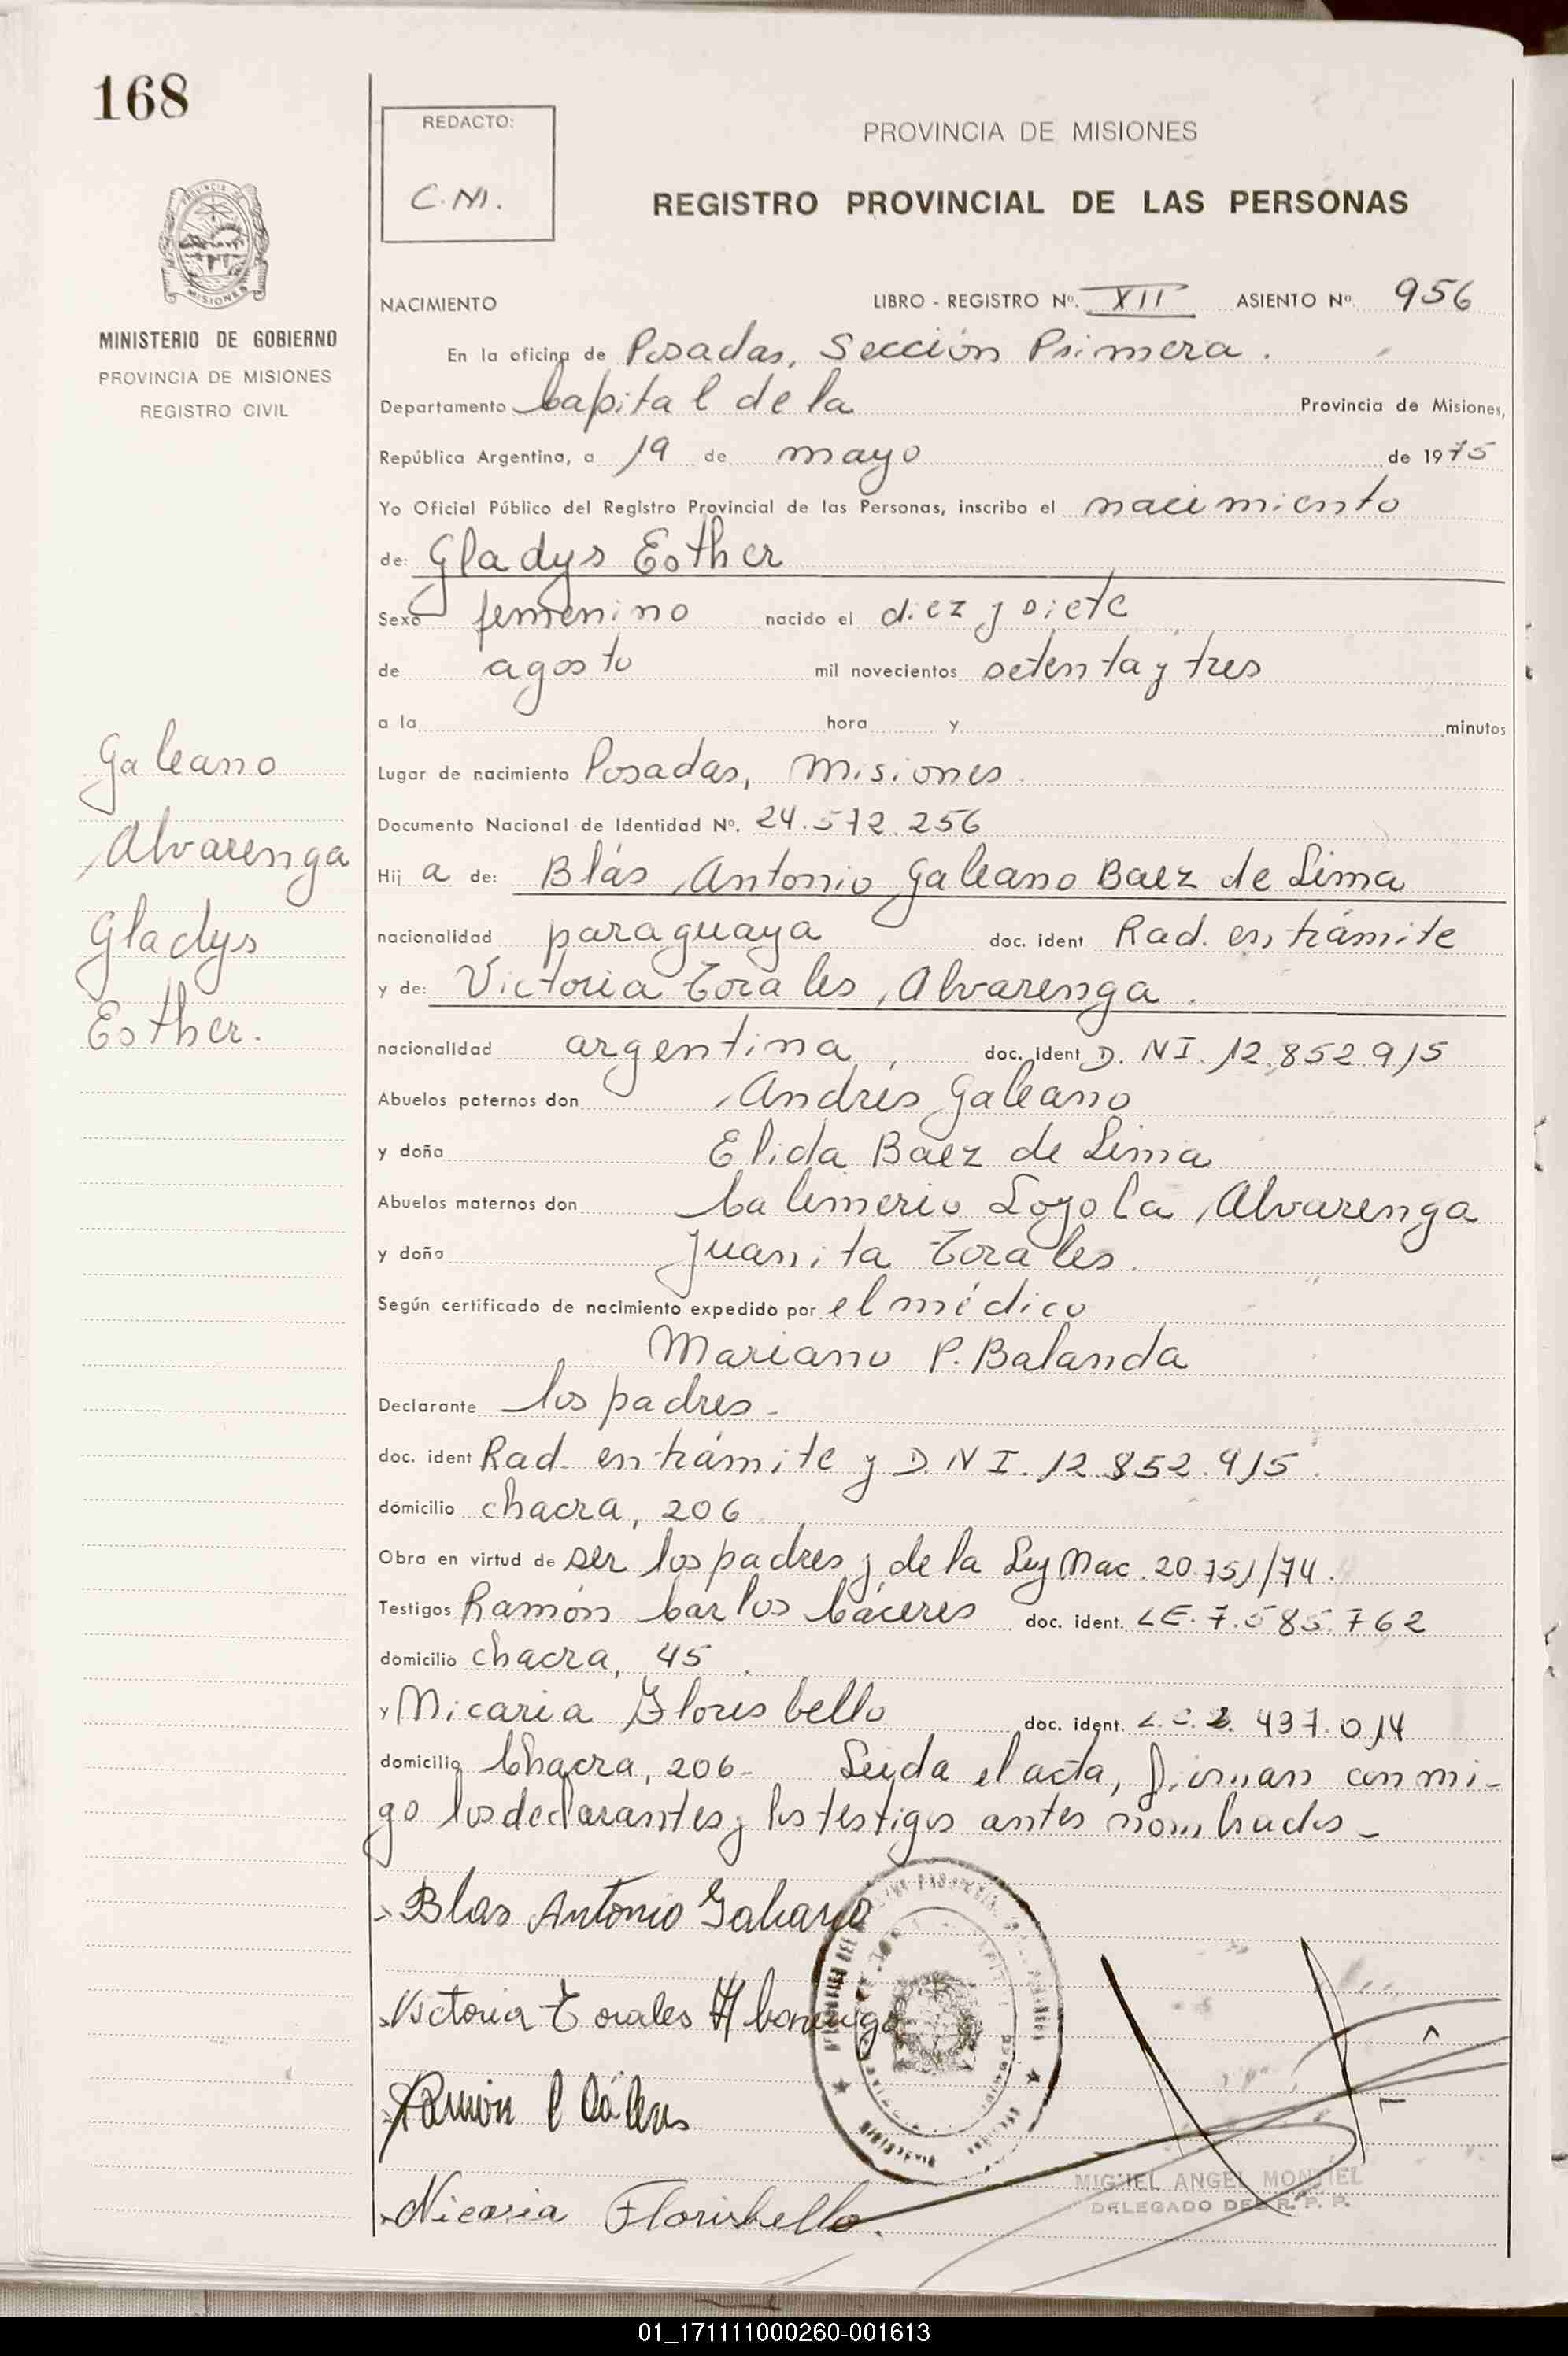 168
REDACTO:
C.M.
PROVINCIA DE MISIONES
REGISTRO PROVINCIAL DE LAS PERSONAS
MISIONES
MINISTERIO DE GOBIERNO
PROVINCIA DE MISIONES
REGISTRO CIVIL
NACIMIENTO LIBRO - REGISTRO Nº. XII ASIENTO Nº. 956
En la oficina de Posadas, Sección Primera.
Departamento Capital de la Provincia de Misiones,
República Argentina, a 19 de mayo de 1975
Yo Oficial Público del Registro Provincial de las Personas, inscribo el nacimiento
de: Gladys Esther
Sexo femenino nacido el diez y siete
de agosto mil novecientos setenta y tres
a la hora y minutos
Lugar de nacimiento Posadas, Misiones.
Documento Nacional de Identidad Nº. 24.572.256
Hij a de: Blás Antonio Galeano Baez de Lima
nacionalidad paraguaya doc. ident Rad. en trámite
y de: Victoria Torales Alvarenga.
nacionalidad argentina, doc. ident D.NI. 12.852.915
Abuelos paternos don Andrés Galeano
y doña Elida Baez de Lima
Abuelos maternos don Calimerio Loyola Alvarenga
y doña Juanita Torales.
Según certificado de nacimiento expedido por el médico
Mariano P. Balanda
Declarante los padres-
doc. ident Rad. en trámite y D.NI. 12.852.915.
domicilio chacra, 206
Obra en virtud de ser los padres y de la Ley Nac. 20.751/74.
Testigos Ramón Carlos Cáceres doc. ident. LE. 7.585.762
domicilio chacra, 45.
y Nicaria Floris bello doc. ident. L.C. 2.437.014
domicilio Chacra, 206- Leída el acta, firman conmi-
go los declarantes y los testigos antes nombrados-
Galeano
Alvarenga
Gladys
Esther.
Blas Antonio Galeano
Victoria Torales
Ramón C Cáceres
Nicaria Florisbello.
MIGUEL ANGEL MONTIEL
DELEGADO DEL R. P. P.
01_171111000260-001613